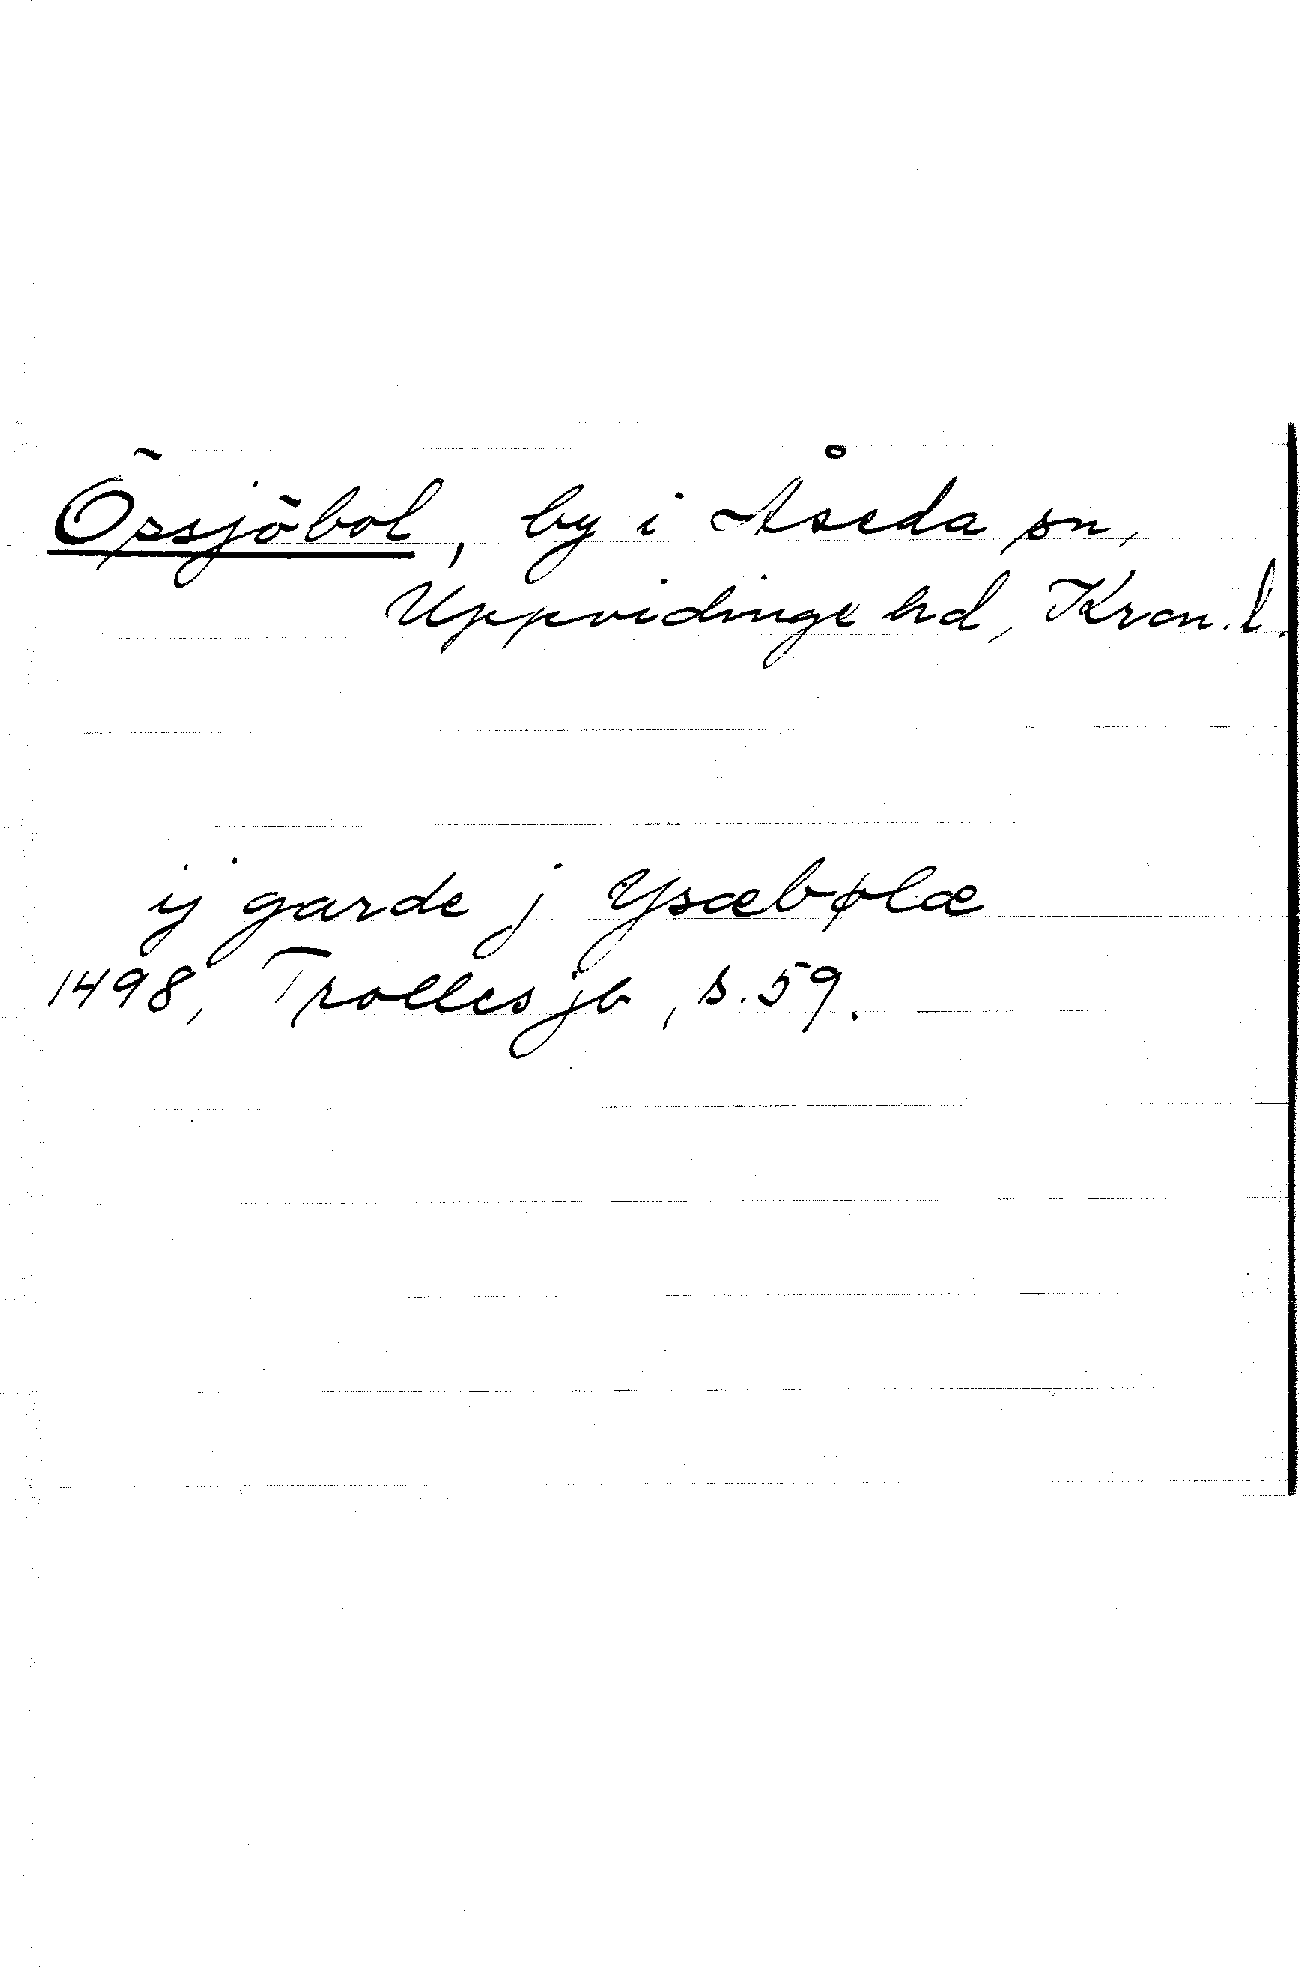 Örsjöbol, by i Åseda sn,
Uppvidinge hd, Kron. l.
ij garde j Ysæbølæ
1498, Trolles jb, s. 59.